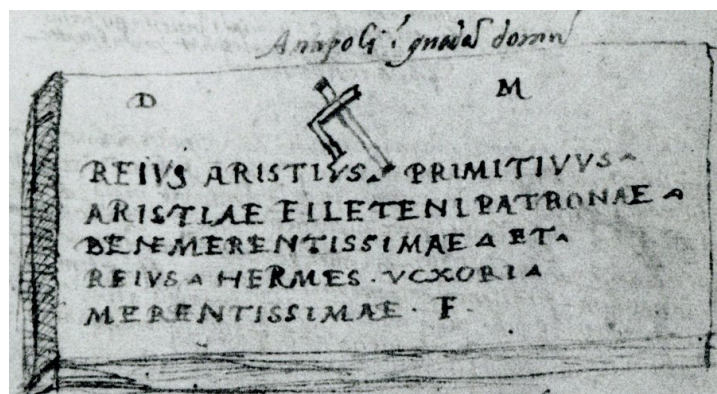 Anapoli i
D M
REIVS ARISTIVS PRIMITIVVS
ARISTIAE FILETENI PATRONAE
BENEMERENTISSIMAE ET
REIVS HERMES · VCXORI
MERENTISSIMAE · F ·